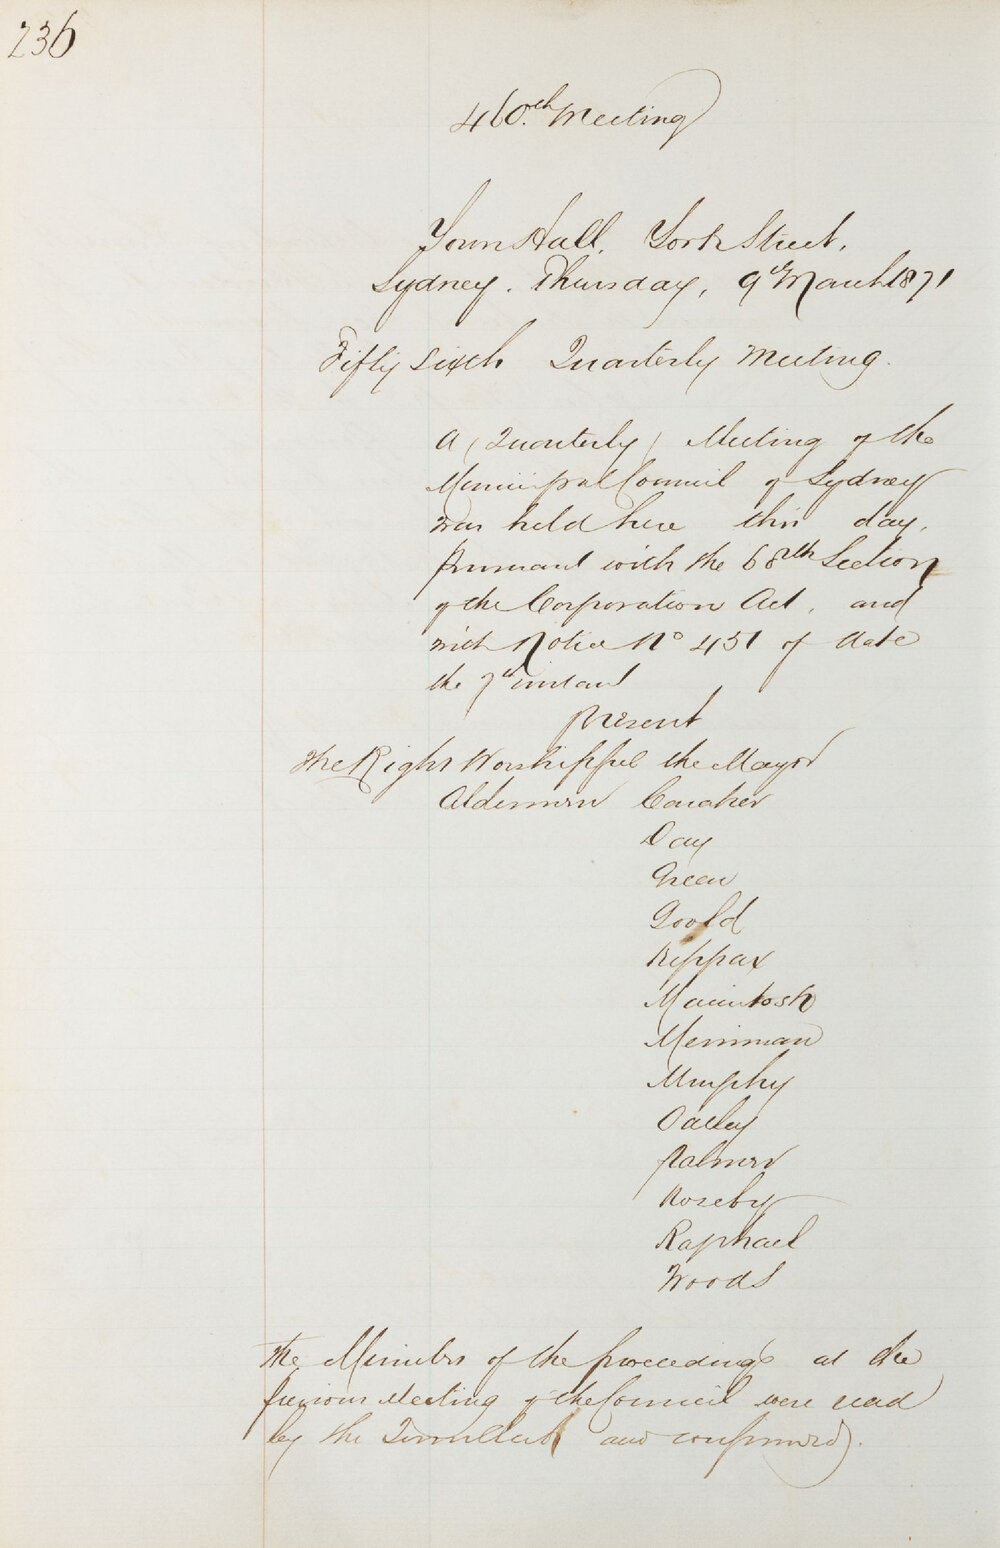 236
460th Meeting
Town Hall, York Street,
Sydney. Thursday, 9th March 1871
Fifty sixth Quarterly Meeting.
A (Quarterly) Meeting of the
Municipal Council of Sydney
was held here this day,
pursuant with the 68th Section
of the Corporation Act, and
with Notice No 451 of date
the 7th instant
Present
The Right Worshipful the Mayor
Aldermen Caraher
Day
Green
Goold
Kippax
Macintosh
Merriman
Murphy
Oatley
Palmer
Roseby
Raphael
Woods
The Minutes of the proceedings at the
previous Meeting of the Council were read
by the Town Clerk and confirmed.